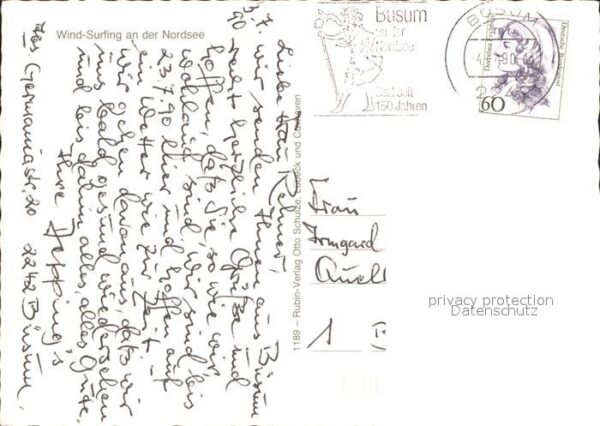 Wind-Surfing an der Nordsee
3.7.
90
Liebe Frau Rel
wir senden Ihnen aus Büsum
recht herzliche Grüße und
hoffen, daß Sie, so wie wir
wohlauf sind. Wir sind bis
23.7.90 hier und hoffen auf
ein Wetter wie zur Zeit –
wir gehen davon aus, daß wir
uns bald gesund wiedersehen
und bis dahin alles, alles Gute.
Ihre
Germaniastr. 20 2242 Büsum.
1189 – Rubin-Verlag Otto Schulze, Lübeck und Cuxhaven
Büsum
an der
Nordsee
Bad seit
150 Jahren
BÜSUM
60
Deutsche Bundespost
Frau
Irmgard
Quell
1
privacy protection
Datenschutz